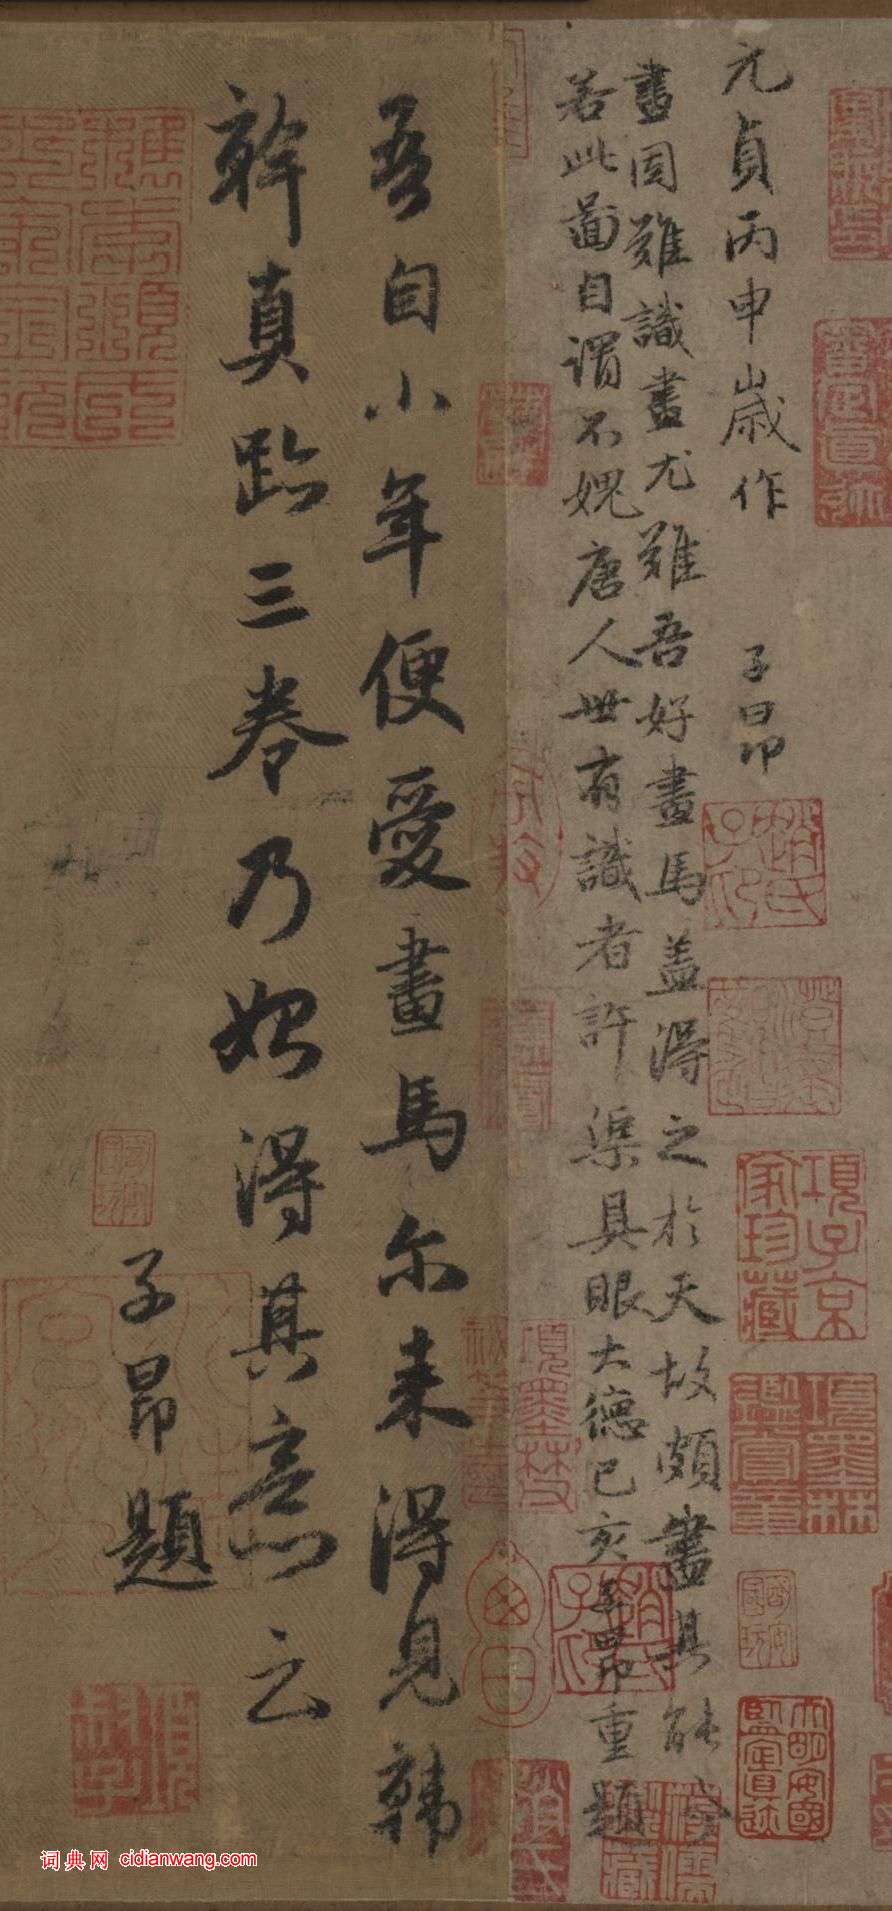 元貞丙申歲作 子昂
畫固難識畫尤難吾好畫馬盖得之於天故頗盡其能今
若此圖自謂不愧唐人世有識者許渠具眼大德己亥子昂重題
吾自小年便愛畫馬尔来得見韓
幹真跡三卷乃始得其意云
子昂題
項子京家珍藏
項墨林鑑賞章
词典网 cidianwang.com